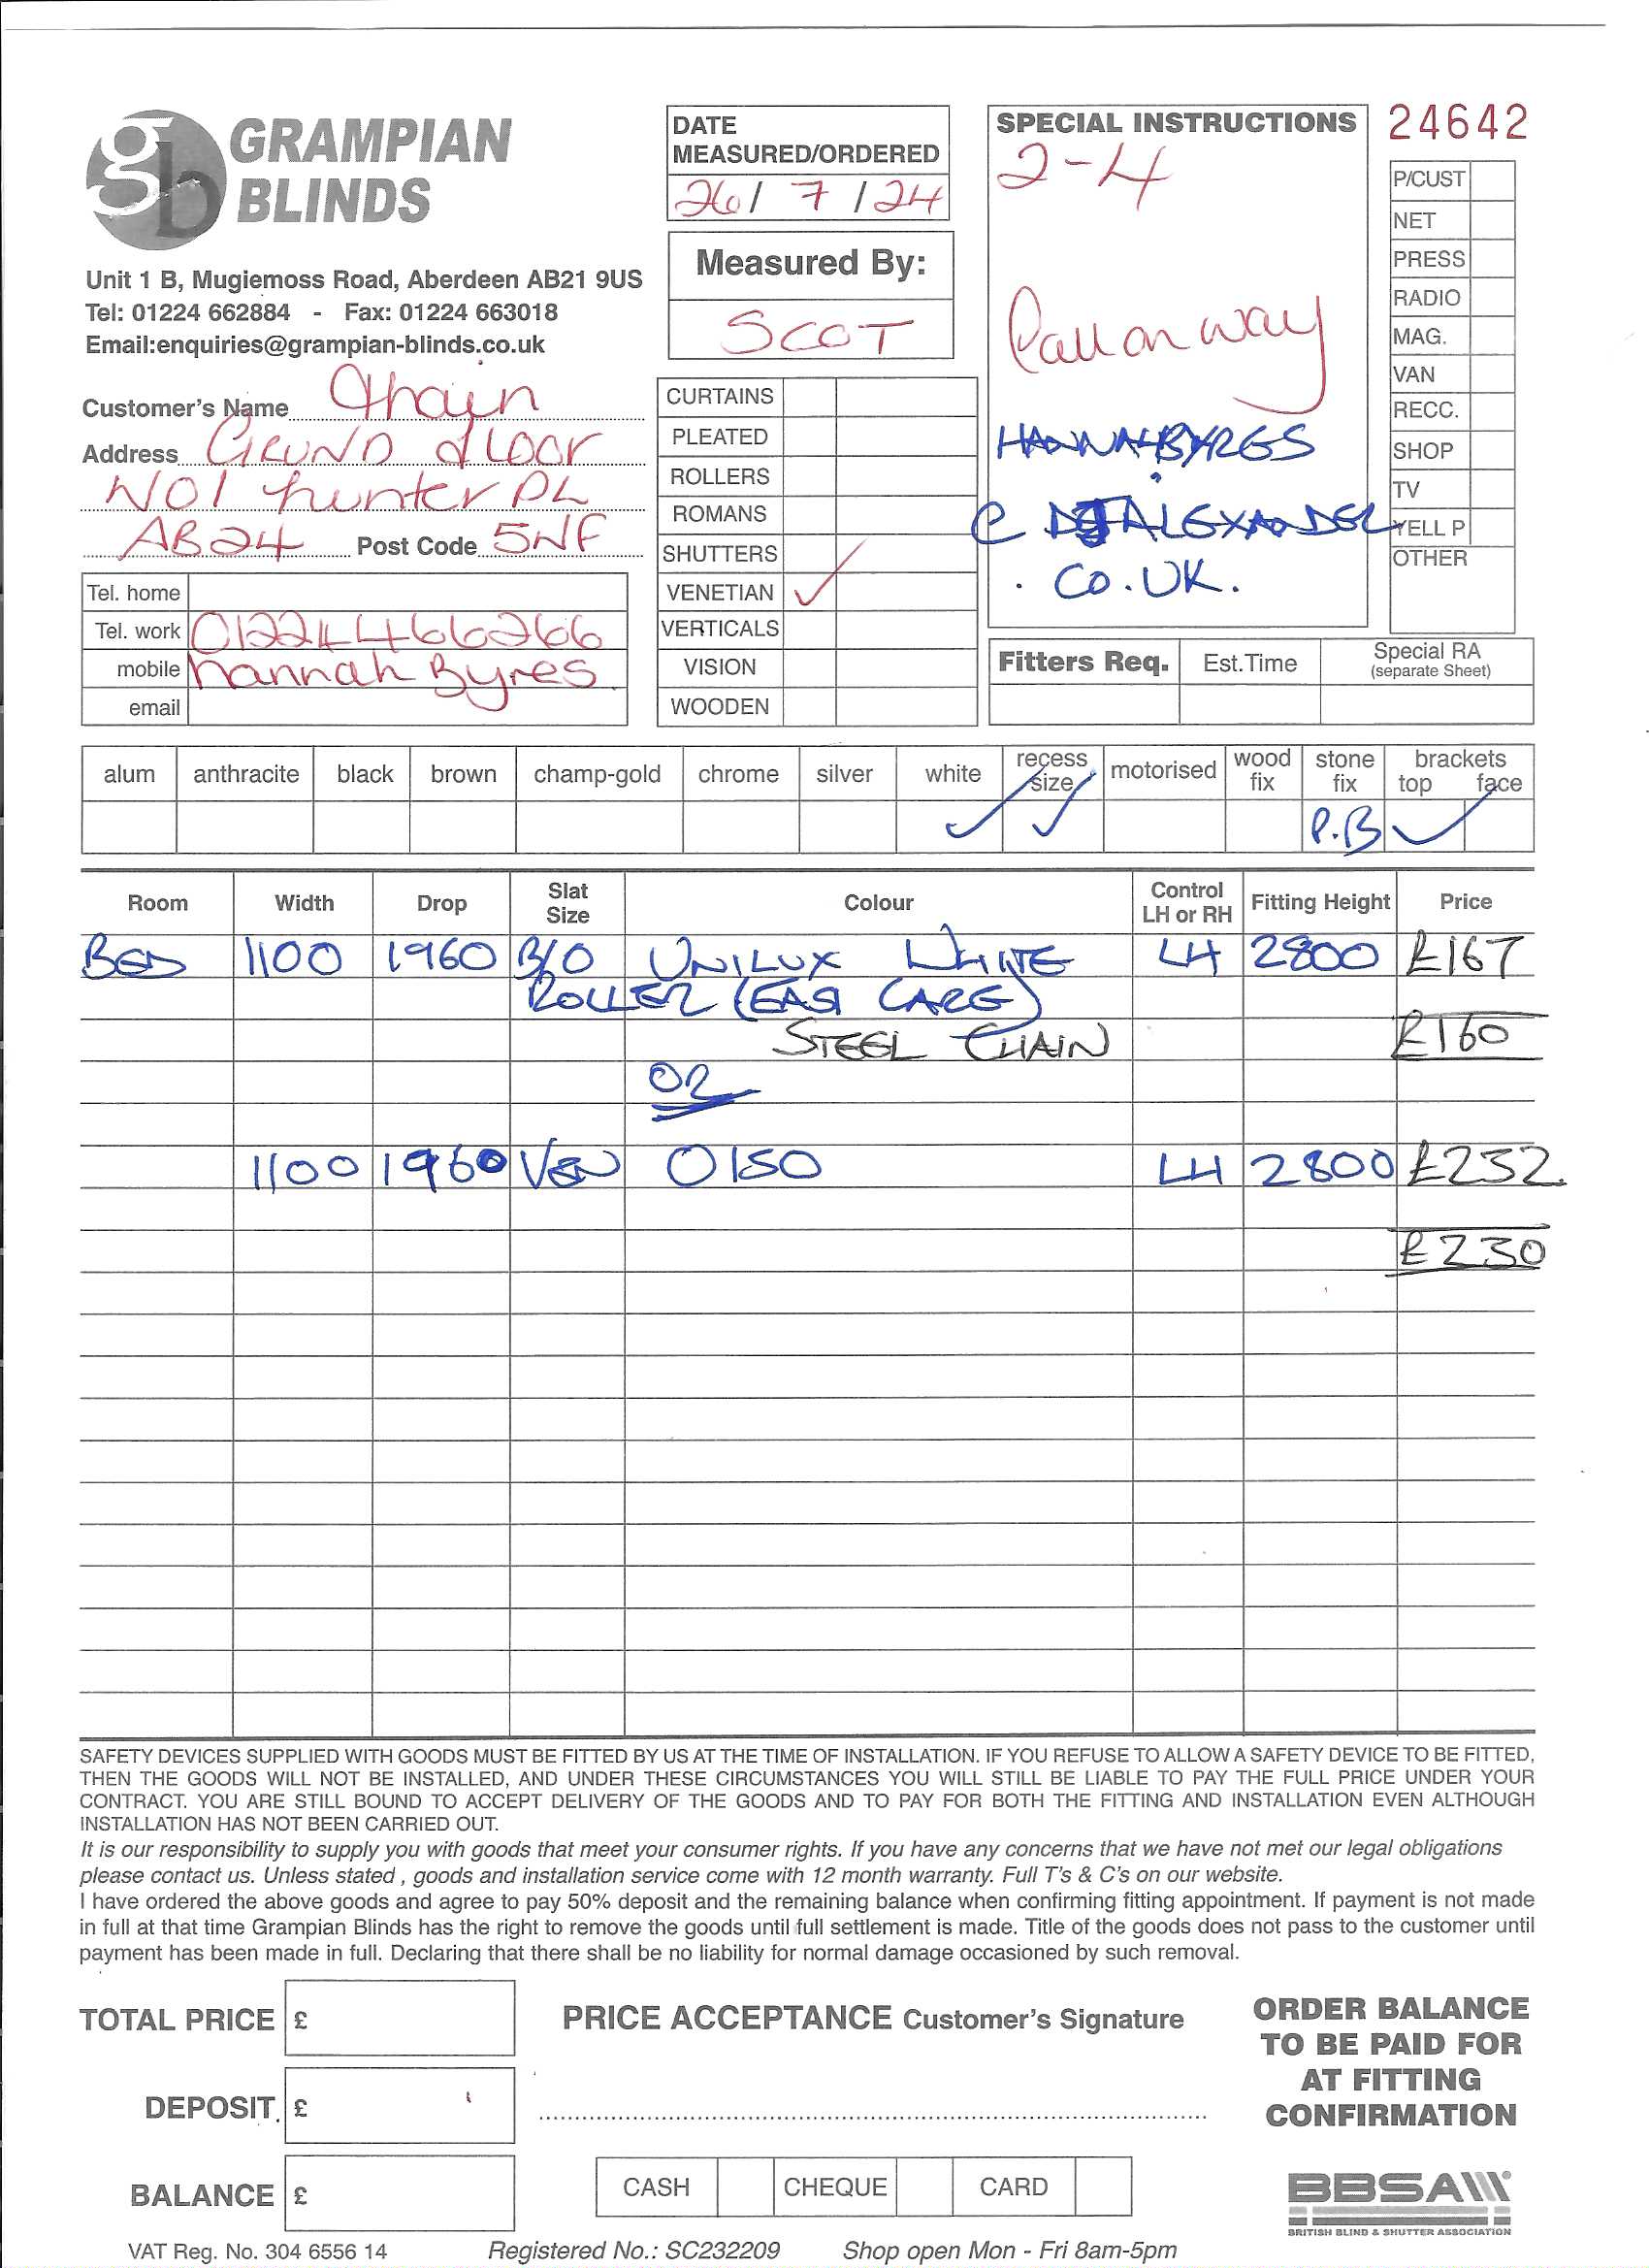 GRAMPIAN
BLINDS
Unit 1 B, Mugiemoss Road, Aberdeen AB21 9US
Tel: 01224 662884 - Fax: 01224 663018
Email:enquiries@grampian-blinds.co.uk
DATE
MEASURED/ORDERED
26/ 7 / 24
Measured By:
SCOT
SPECIAL INSTRUCTIONS
2-4
Call on way
HANNAH BYRES
@ ALEXANDER
. CO.UK.
24642
P/CUST
NET
PRESS
RADIO
MAG.
VAN
RECC.
SHOP
TV
YELL P
OTHER
Customer's Name Thain
Address GRUND floor
NO1 hunter PL
AB24 Post Code 5NF
Tel. home
Tel. work 01224466266
mobile hannah Byres
email
CURTAINS
PLEATED
ROLLERS
ROMANS
SHUTTERS
VENETIAN ✓
VERTICALS
VISION
WOODEN
Fitters Req. Est.Time Special RA
(separate Sheet)
alum anthracite black brown champ-gold chrome silver white recess size motorised wood fix stone fix brackets top face
✓ ✓ P.B ✓
Room Width Drop Slat Size Colour Control LH or RH Fitting Height Price
BED 1100 1960 B/O UNILUX WHITE LH 2800 £167
ROLLER (EASI CARE)
STEEL CHAIN £160
OR
1100 1960 VEN 0150 LH 2800 £232.
£230
SAFETY DEVICES SUPPLIED WITH GOODS MUST BE FITTED BY US AT THE TIME OF INSTALLATION. IF YOU REFUSE TO ALLOW A SAFETY DEVICE TO BE FITTED,
THEN THE GOODS WILL NOT BE INSTALLED, AND UNDER THESE CIRCUMSTANCES YOU WILL STILL BE LIABLE TO PAY THE FULL PRICE UNDER YOUR
CONTRACT. YOU ARE STILL BOUND TO ACCEPT DELIVERY OF THE GOODS AND TO PAY FOR BOTH THE FITTING AND INSTALLATION EVEN ALTHOUGH
INSTALLATION HAS NOT BEEN CARRIED OUT.
It is our responsibility to supply you with goods that meet your consumer rights. If you have any concerns that we have not met our legal obligations
please contact us. Unless stated , goods and installation service come with 12 month warranty. Full T's & C's on our website.
I have ordered the above goods and agree to pay 50% deposit and the remaining balance when confirming fitting appointment. If payment is not made
in full at that time Grampian Blinds has the right to remove the goods until full settlement is made. Title of the goods does not pass to the customer until
payment has been made in full. Declaring that there shall be no liability for normal damage occasioned by such removal.
TOTAL PRICE £
PRICE ACCEPTANCE Customer's Signature
ORDER BALANCE
TO BE PAID FOR
AT FITTING
CONFIRMATION
DEPOSIT £
BALANCE £
CASH CHEQUE CARD
BBSA
BRITISH BLIND & SHUTTER ASSOCIATION
VAT Reg. No. 304 6556 14 Registered No.: SC232209 Shop open Mon - Fri 8am-5pm